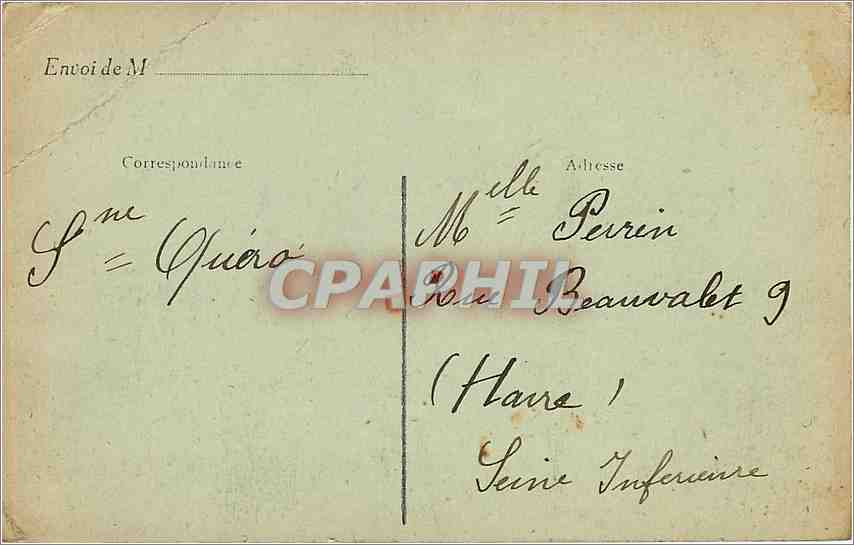 Envoi de M
Correspondance
Sne Quéro
Adresse
Melle Perrin
Rue Beauvalet 9
(Havre)
Seine Inferieure
CPAPHIL